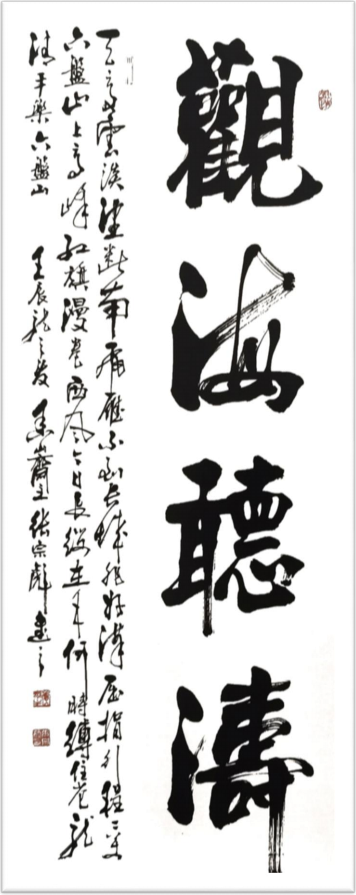 觀海聽濤
天高雲淡望斷南飛雁不到長城非好漢屈指行程二萬
六盤山上高峰紅旗漫卷西風今日長纓在手何時縛住蒼龍
清平樂六盤山 壬辰龍之 齋主張宗彪書之